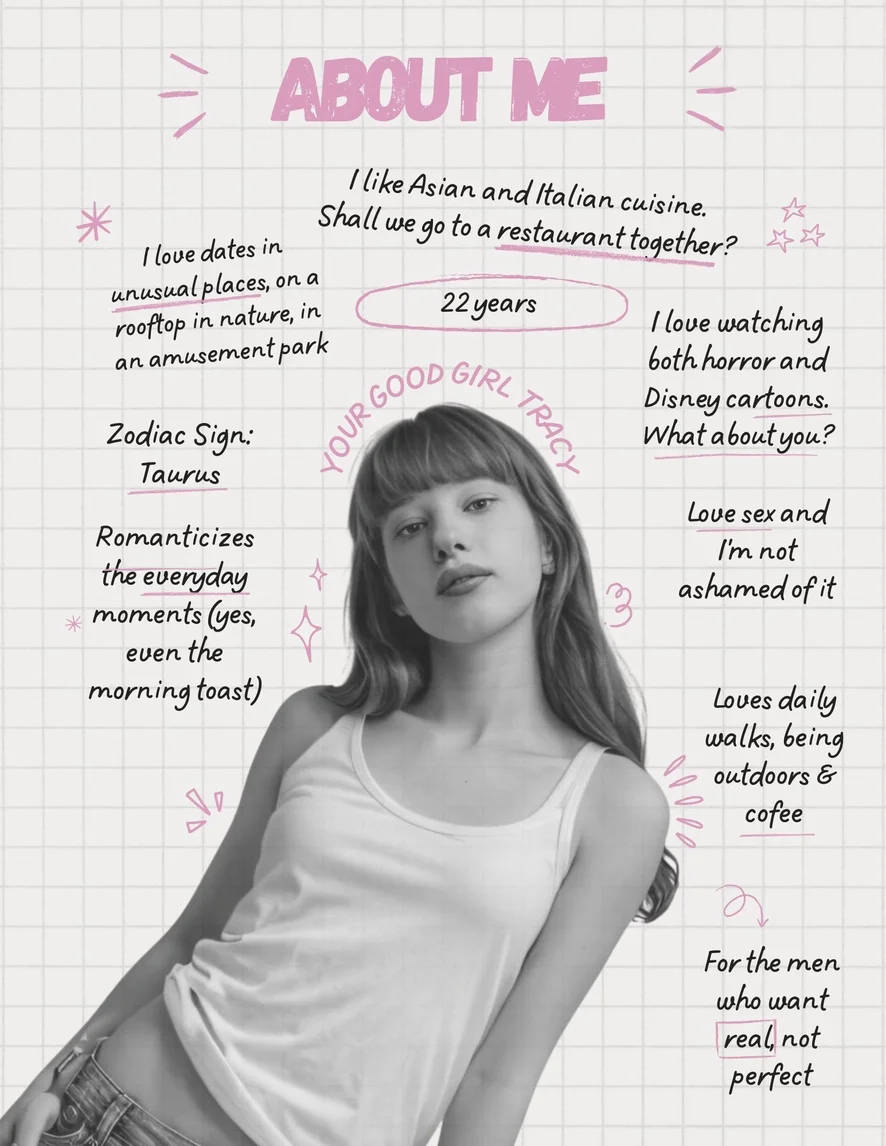 ABOUT ME
I like Asian and Italian cuisine.
Shall we go to a restaurant together?
I love dates in
unusual places, on a
rooftop in nature, in
an amusement park
22 years
I love watching
both horror and
Disney cartoons.
What about you?
YOUR GOOD GIRL TRACY
Zodiac Sign:
Taurus
Love sex and
I'm not
ashamed of it
Romanticizes
the everyday
moments (yes,
even the
morning toast)
Loves daily
walks, being
outdoors &
cofee
For the men
who want
real, not
perfect